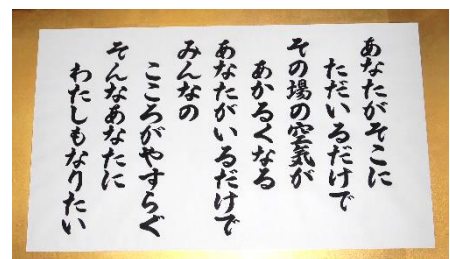 あなたがそこに
ただいるだけで
その場の空気が
あかるくなる
あなたがいるだけで
みんなの
こころがやすらぐ
そんなあなたに
わたしもなりたい